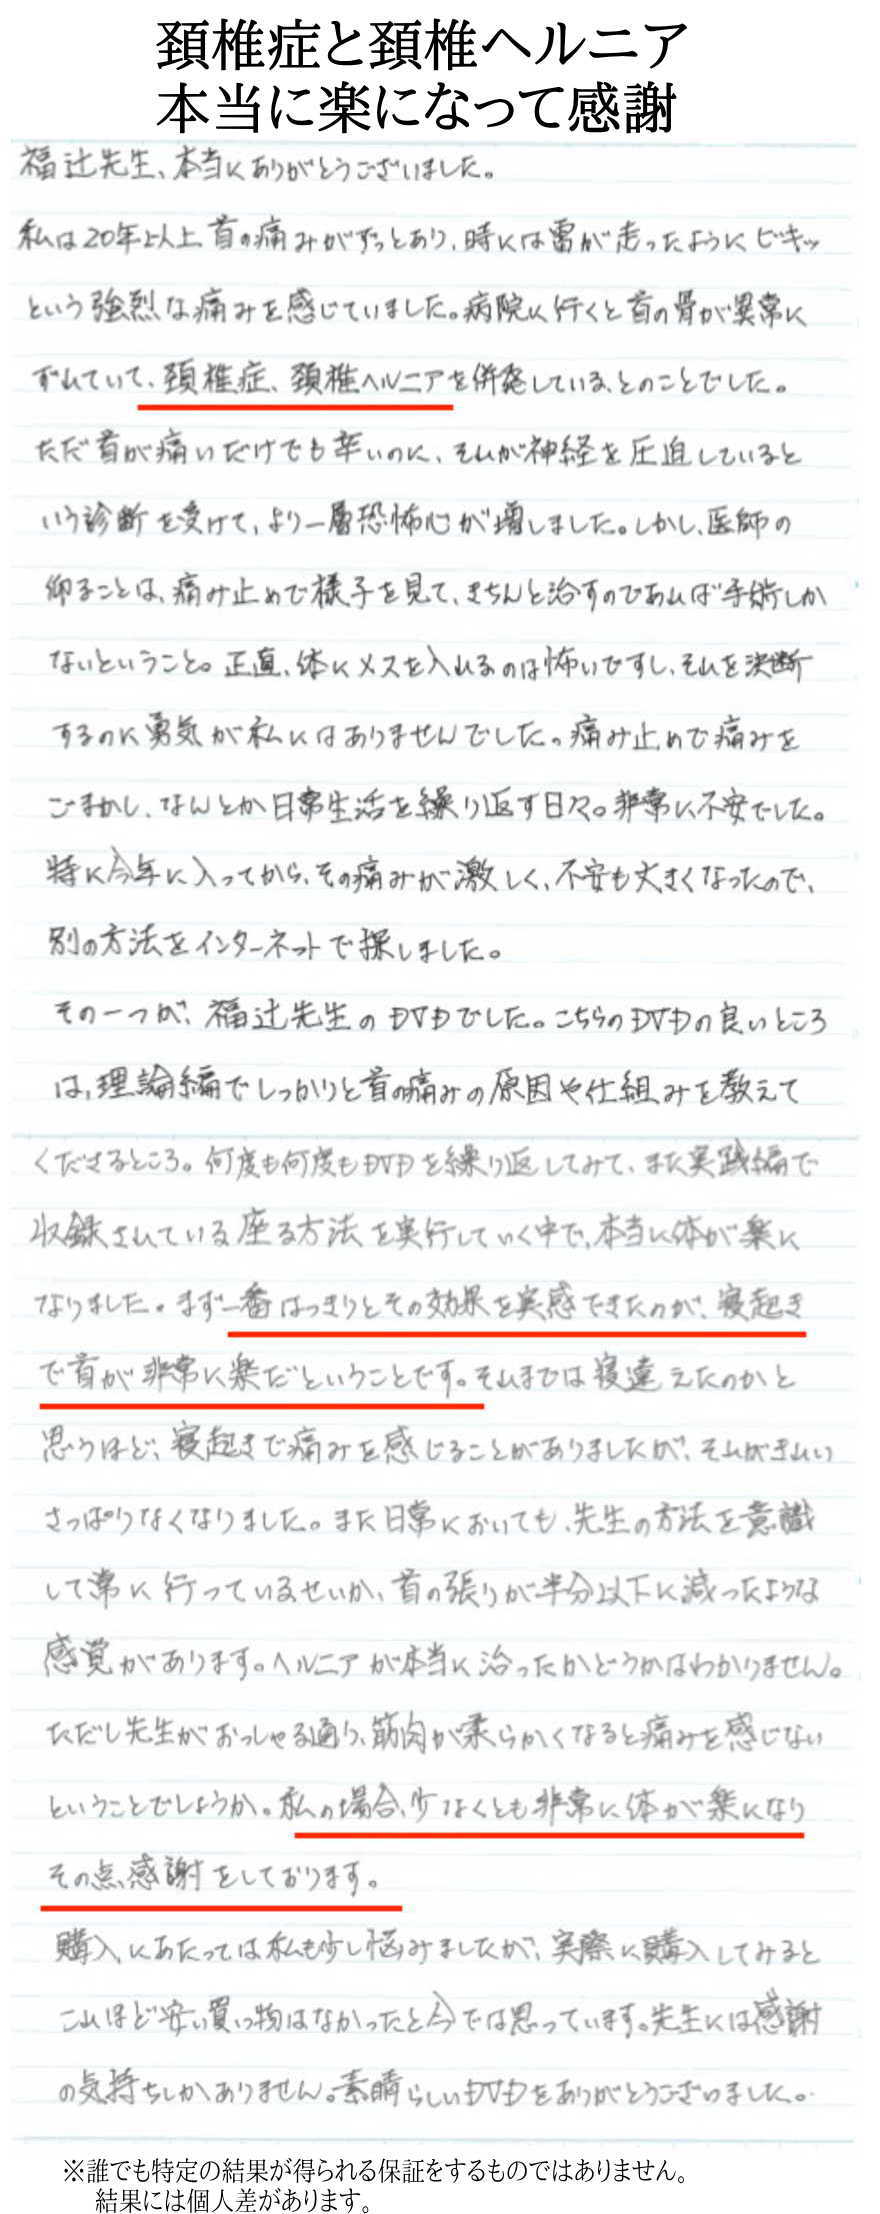 頚椎症と頚椎ヘルニア
本当に楽になって感謝
福辻先生、本当にありがとうございました。
私は20年以上首の痛みがずっとあり、時には雷が走ったようにビキッ
という強烈な痛みを感じていました。病院に行くと首の骨が異常に
ずれていて、頚椎症、頚椎ヘルニアを併発している、とのことでした。
ただ首が痛いだけでも辛いのに、それが神経を圧迫していると
いう診断を受けて、より一層恐怖心が増しました。しかし、医師の
仰ることは、痛み止めで様子を見て、きちんと治すのであれば手術しか
ないということ。正直、体にメスを入れるのは怖いですし、それを決断
するのに勇気が私にはありませんでした。痛み止めで痛みを
ごまかし、なんとか日常生活を繰り返す日々。非常に不安でした。
特に今年に入ってから、その痛みが激しく、不安も大きくなったので、
別の方法をインターネットで探しました。
その一つが、福辻先生のDVDでした。こちらのDVDの良いところ
は、理論編でしっかりと首の痛みの原因や仕組みを教えて
くださるところ。何度も何度もDVDを繰り返してみて、また実践編で
収録されている座る方法を実行していく中で、本当に体が楽に
なりました。まず一番はっきりとその効果を実感できたのが、寝起き
で首が非常に楽だということです。それまでは寝違えたのかと
思うほど、寝起きで痛みを感じることがありましたが、それがきれい
さっぱりなくなりました。また日常においても、先生の方法を意識
して常に行っているせいか、首の張りが半分以下に減ったような
感覚があります。ヘルニアが本当に治ったかどうかはわかりません。
ただし先生がおっしゃる通り、筋肉が柔らかくなると痛みを感じない
ということでしょうか。私の場合、少なくとも非常に体が楽になり
その点、感謝をしております。
購入にあたっては私も少し悩みましたが、実際に購入してみると
これほど安い買い物はなかったと今では思っています。先生には感謝
の気持ちしかありません。素晴らしいDVDをありがとうございました。
※誰でも特定の結果が得られる保証をするものではありません。
結果には個人差があります。